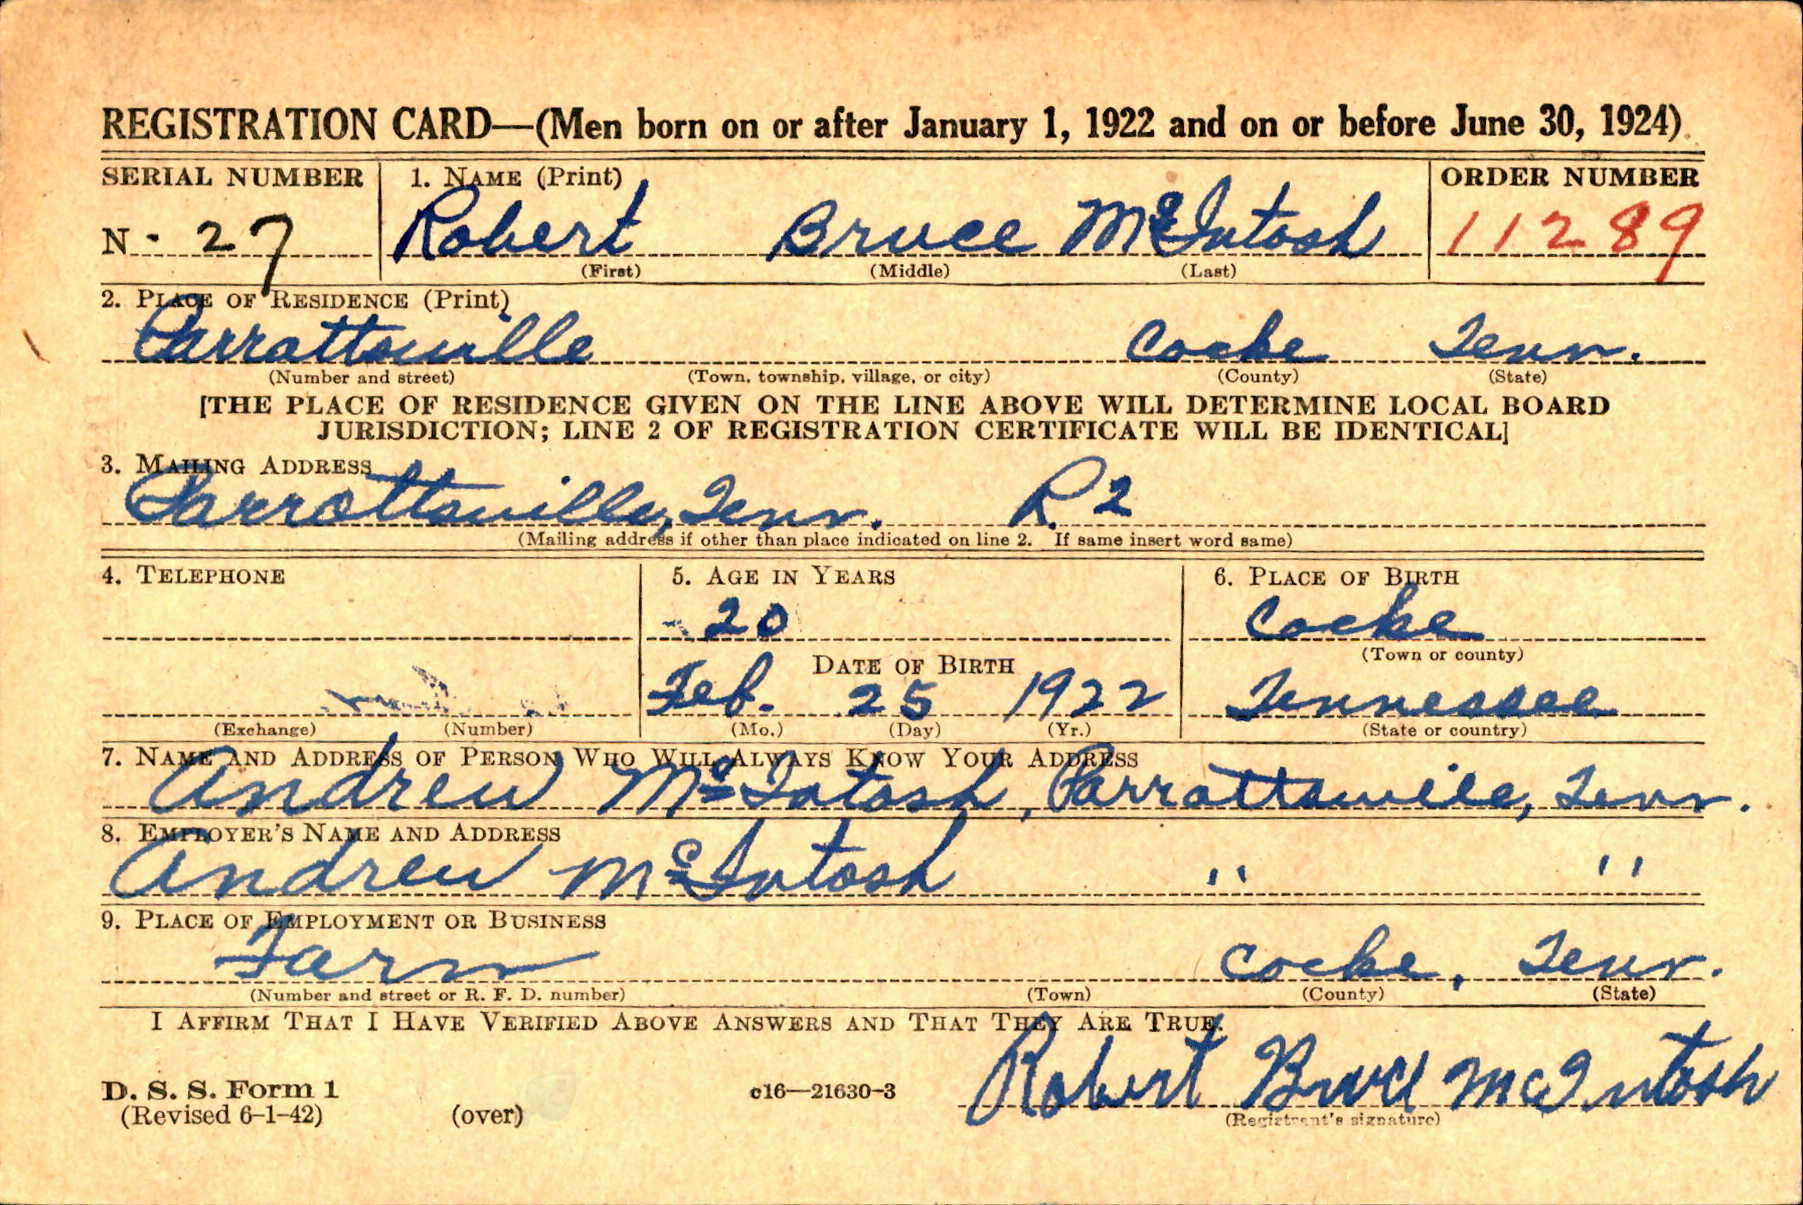 REGISTRATION CARD—(Men born on or after January 1, 1922 and on or before June 30, 1924)
SERIAL NUMBER 1. NAME (Print) ORDER NUMBER
N - 27 Robert Bruce McIntosh 11289
(First) (Middle) (Last)
2. PLACE OF RESIDENCE (Print)
Parrottsville Cocke Tenn.
(Number and street) (Town, township, village, or city) (County) (State)
[THE PLACE OF RESIDENCE GIVEN ON THE LINE ABOVE WILL DETERMINE LOCAL BOARD
JURISDICTION; LINE 2 OF REGISTRATION CERTIFICATE WILL BE IDENTICAL]
3. MAILING ADDRESS
Parrottsville, Tenn. R 2
(Mailing address if other than place indicated on line 2. If same insert word same)
4. TELEPHONE 5. AGE IN YEARS 6. PLACE OF BIRTH
20 Cocke
DATE OF BIRTH (Town or county)
Feb. 25 1922 Tennessee
(Exchange) (Number) (Mo.) (Day) (Yr.) (State or country)
7. NAME AND ADDRESS OF PERSON WHO WILL ALWAYS KNOW YOUR ADDRESS
Andrew McIntosh, Parrottsville, Tenn.
8. EMPLOYER'S NAME AND ADDRESS
Andrew McIntosh " "
9. PLACE OF EMPLOYMENT OR BUSINESS
Farm Cocke, Tenn.
(Number and street or R. F. D. number) (Town) (County) (State)
I AFFIRM THAT I HAVE VERIFIED ABOVE ANSWERS AND THAT THEY ARE TRUE.
Robert Bruce McIntosh
D. S. S. Form 1 c16—21630-3
(Revised 6-1-42) (over) (Registrant's signature)